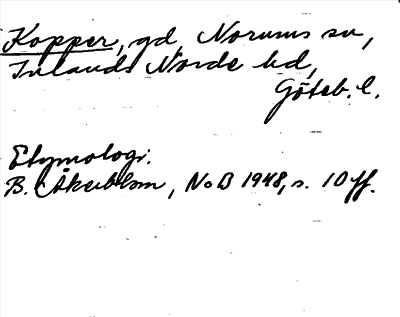 Kopper, gd, Norums sn,
Inlands Norde hd,
Göteb. l.
Etymologi.
B. Åkerblom, NoB 1948, s. 10 ff.